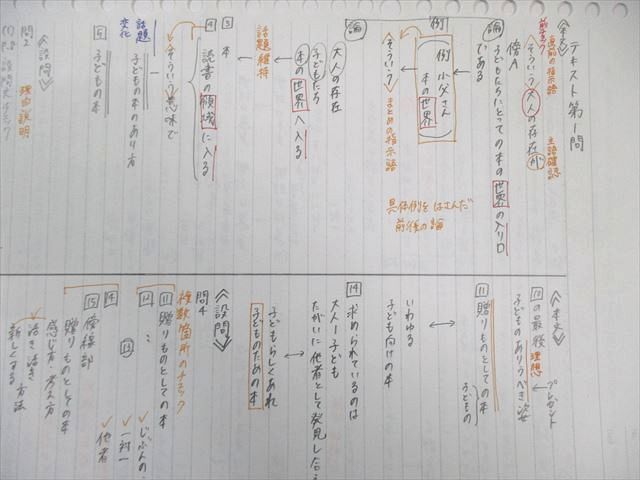 テキスト第1問
≪本文≫
直前の指示語
主語確認
そういう大人の存在が
傍A
子どもたちにとっての本の世界の入り口
である
論
例
例 小父さん
本の世界
そういう
まとめの指示語
具体例をはさんだ
前後の論
論
大人の存在
子どもたち
本の世界へ入る
話題維持
3
本
4
読書の領域に入る
そういう意味で
話題
変化
子どもの本のあり方
5
子どもの本
≪設問≫
問2
理由説明
≪本文≫
11の最後
プレゼント
理想
子どものありうべき姿
11
贈りものとしての本
子どもの
いわゆる
子ども向けの本
14
求められているのは
大人ー子ども
たがいに他者として発見し合う
子どもらしくあれ
子どものための本
≪設問≫
問4
複数箇所のチェック
11
贈りものとしての本
12
13
じぶんの
一対一
14
他者
15
傍線部
贈りものとしての本
感じ方・考え方
活き活き
新しくする
方法